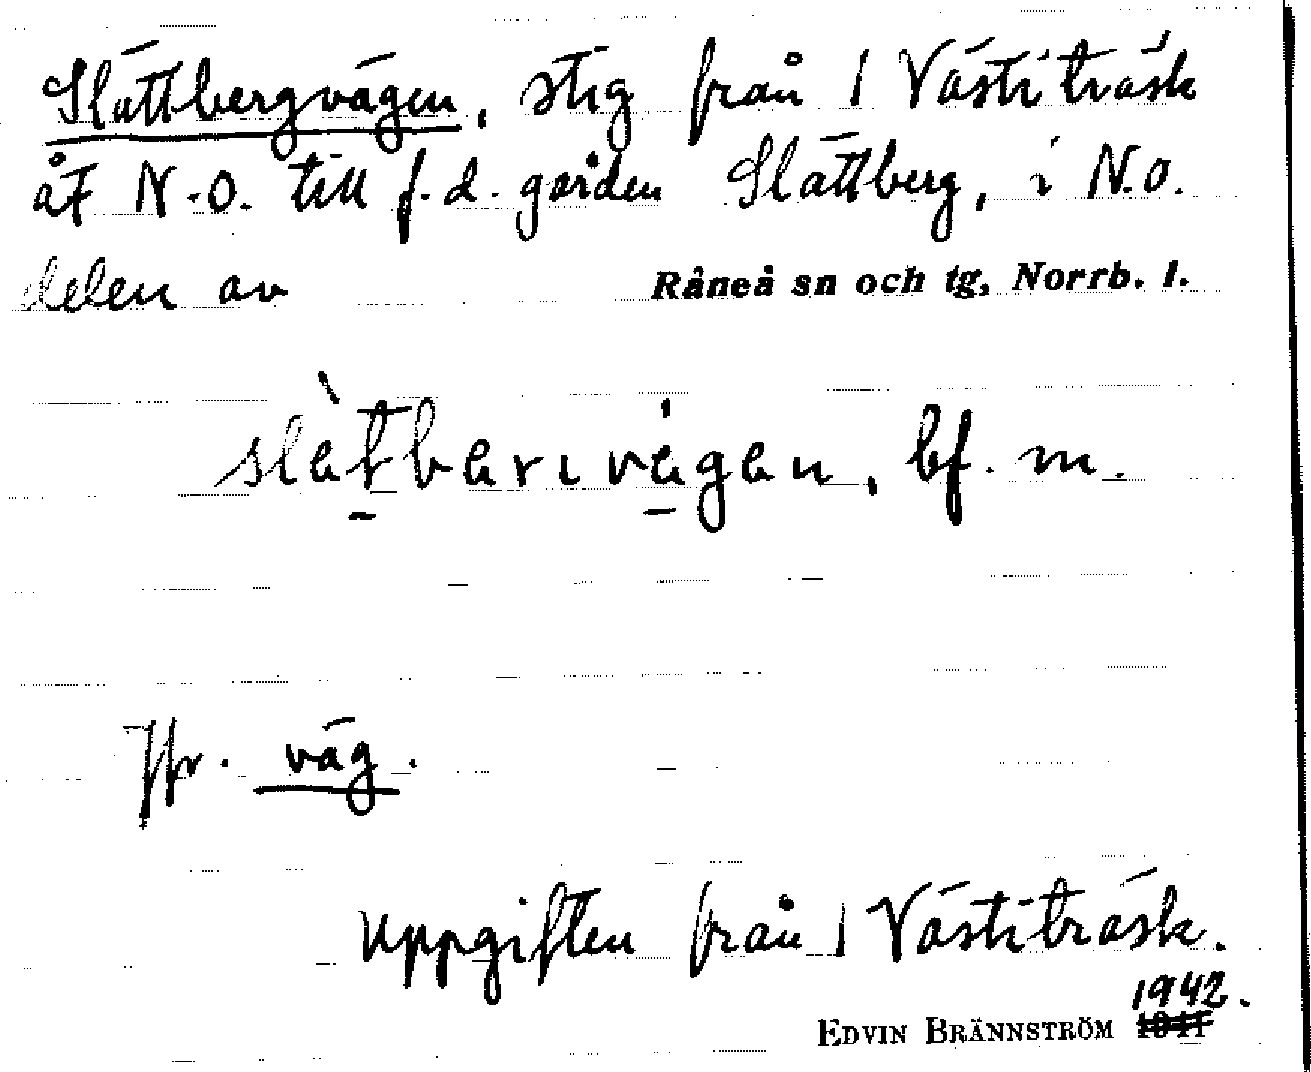 Slättbergvägen, stig från 1 Västiträsk
åt N.O. till f.d. gården Slättberg, i N.O.
delen av Råneå sn och tg, Norrb. l.
slètbarɩvégan, bf. m.
Jfr. väg.
Uppgiften från 1 Västiträsk.
1942.
EDVIN BRÄNNSTRÖM 1941